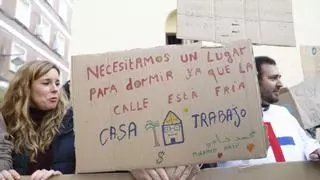 NECESITAMOS UN LUGAR
PARA DORMIR YA QUE LA
CALLE ESTA FRÍA
CASA TRABAJO
$